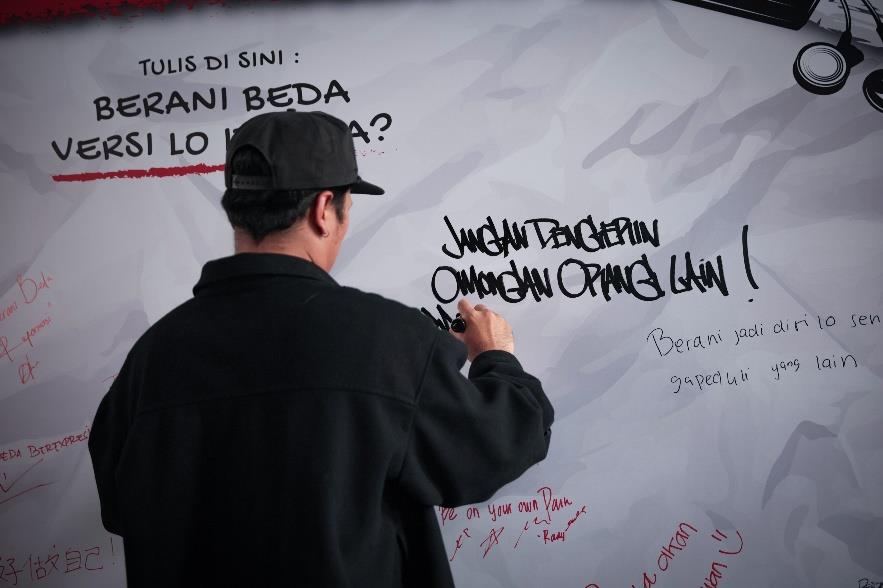 TULIS DI SINI :
BERANI BEDA
VERSI LO A?
JANGAN DENGERIIN
OMONGAN ORANG LAIN !
Berani jadi diri lo sen
gapeduli yang lain
Beda
BEDA BEREXPRESI
Be on your own Path
好做自己!
akan